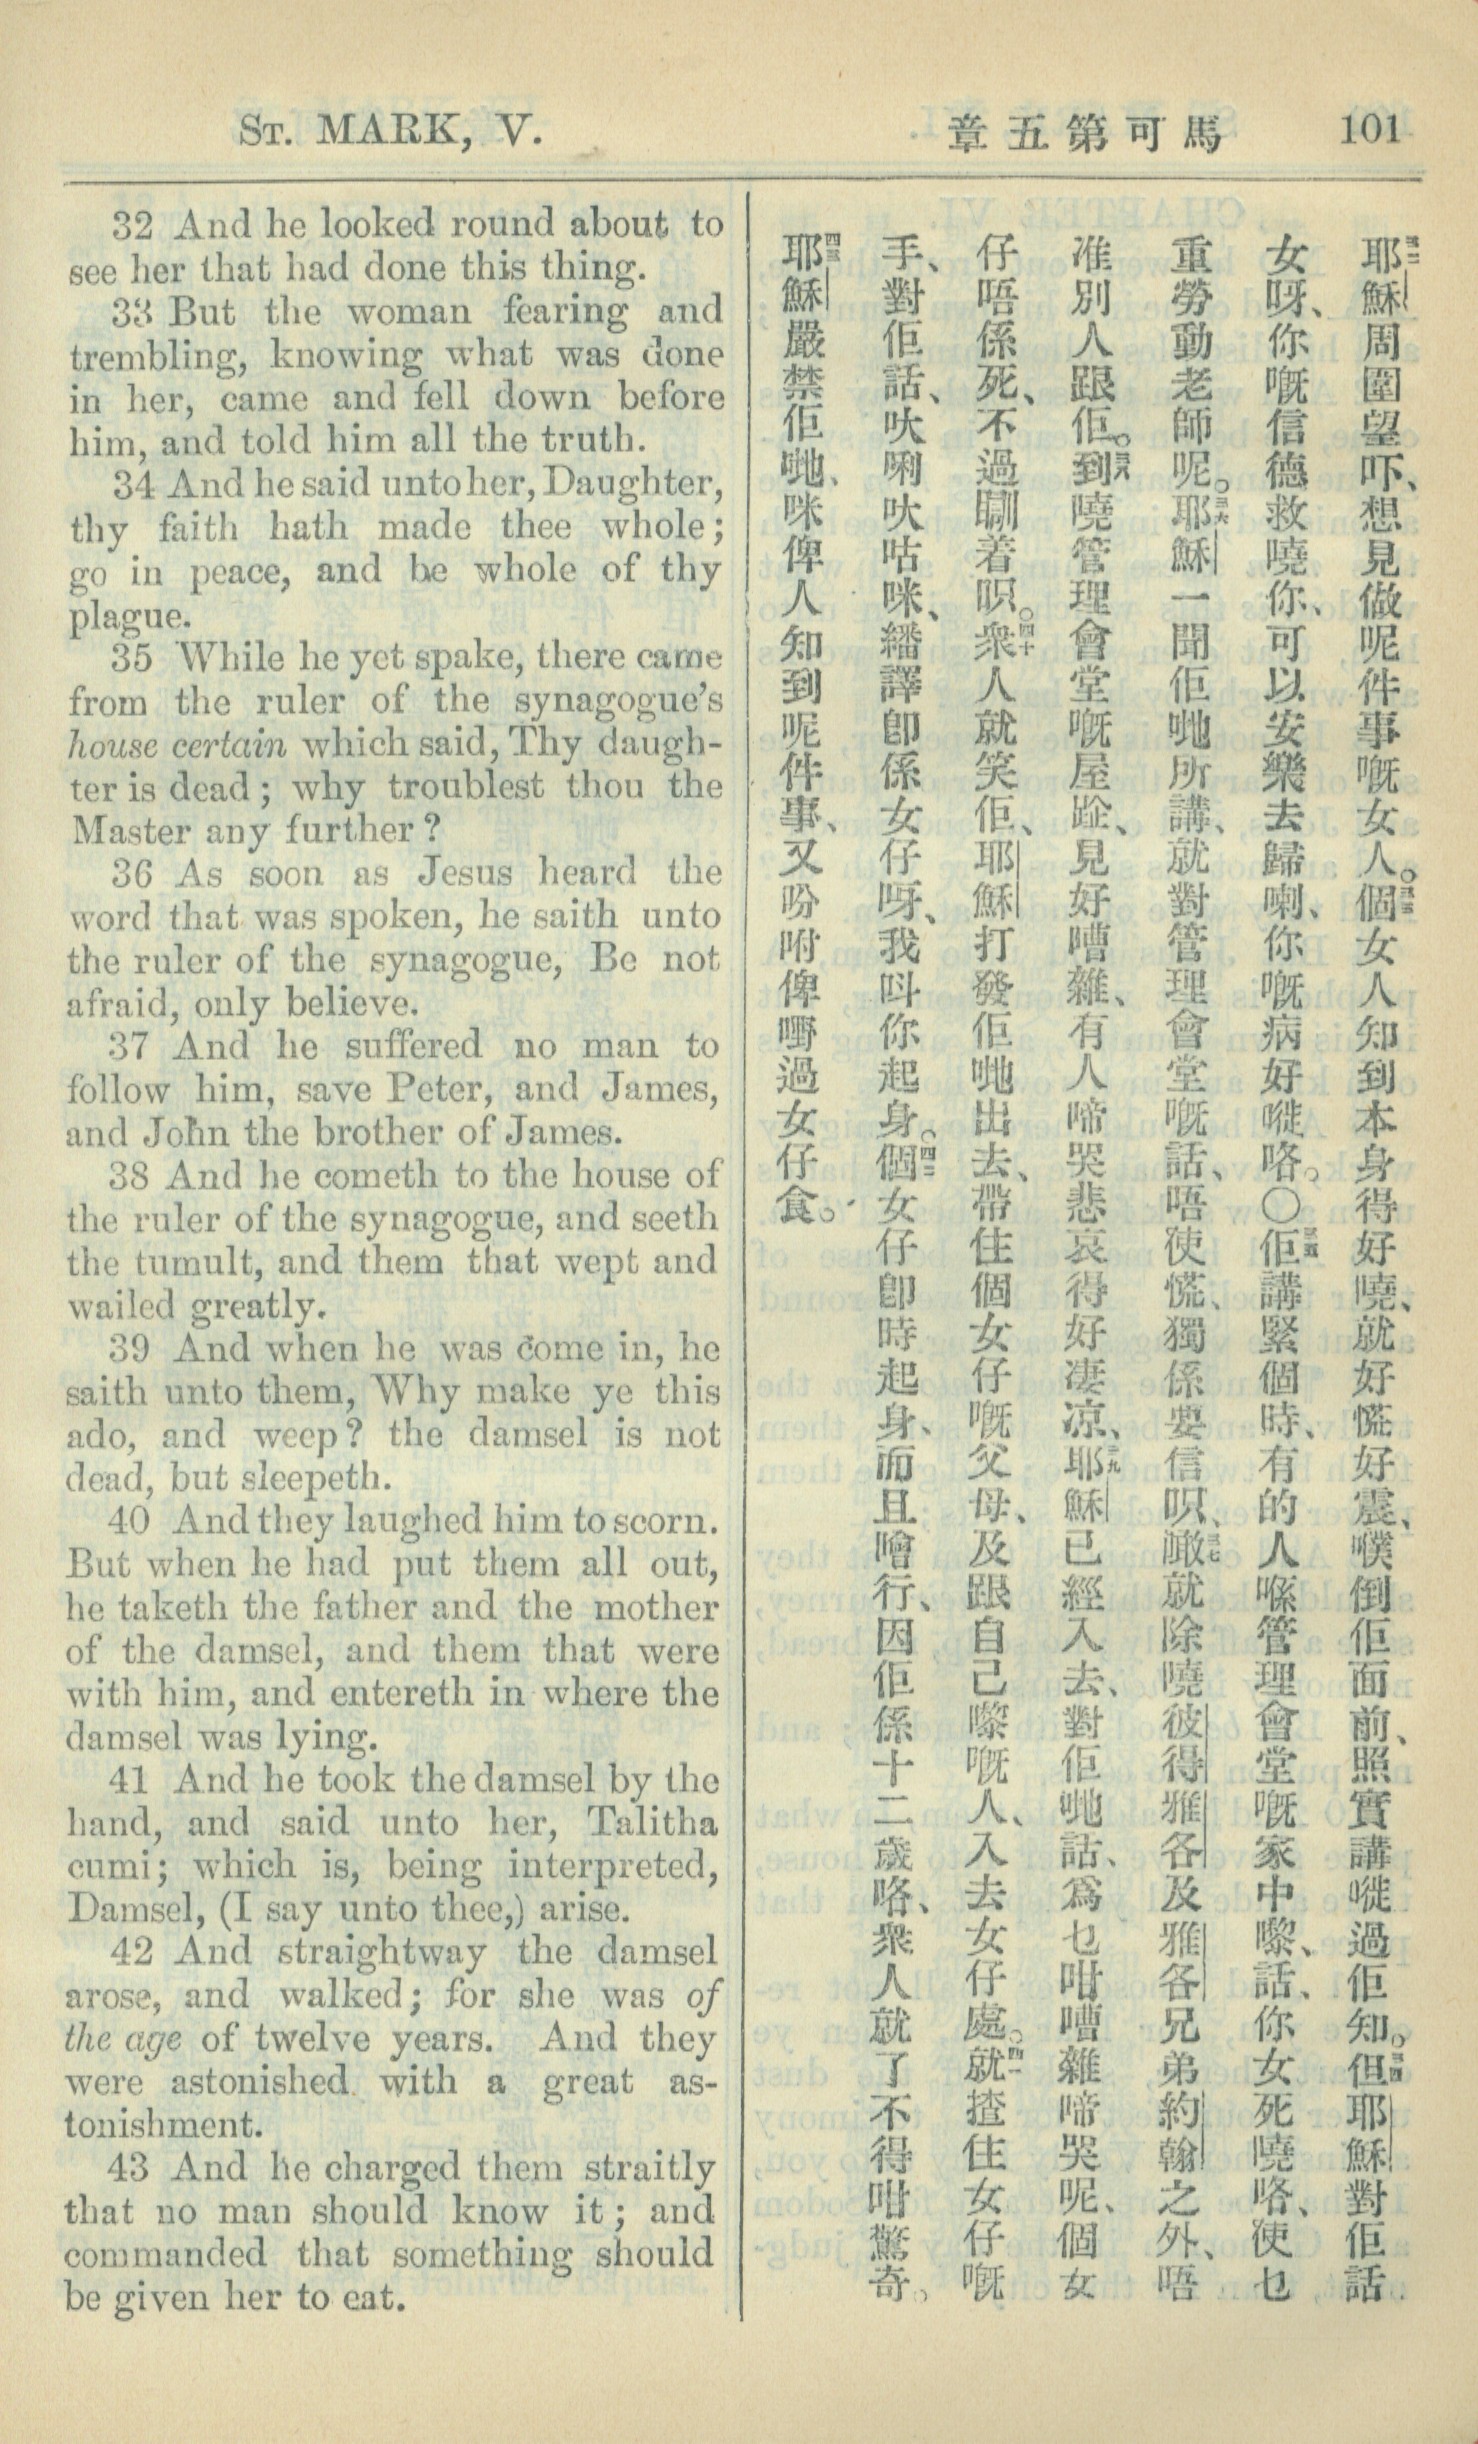 St. MARK, V.
章五第可馬
101
32 And he looked round about to
see her that had done this thing.
33 But the woman fearing and
trembling, knowing what was done
in her, came and fell down before
him, and told him all the truth.
34 And he said unto her, Daughter,
thy faith hath made thee whole;
go in peace, and be whole of thy
plague.
35 While he yet spake, there came
from the ruler of the synagogue's
house certain which said, Thy daugh-
ter is dead; why troublest thou the
Master any further?
36 As soon as Jesus heard the
word that was spoken, he saith unto
the ruler of the synagogue, Be not
afraid, only believe.
37 And he suffered no man to
follow him, save Peter, and James,
and John the brother of James.
38 And he cometh to the house of
the ruler of the synagogue, and seeth
the tumult, and them that wept and
wailed greatly.
39 And when he was come in, he
saith unto them, Why make ye this
ado, and weep? the damsel is not
dead, but sleepeth.
40 And they laughed him to scorn.
But when he had put them all out,
he taketh the father and the mother
of the damsel, and them that were
with him, and entereth in where the
damsel was lying.
41 And he took the damsel by the
hand, and said unto her, Talitha
cumi; which is, being interpreted,
Damsel, (I say unto thee,) arise.
42 And straightway the damsel
arose, and walked; for she was of
the age of twelve years. And they
were astonished with a great as-
tonishment.
43 And he charged them straitly
that no man should know it; and
commanded that something should
be given her to eat.
三二耶穌周圍望吓、想見做呢件事嘅女人。三三個女人知到本身得好嘵、就好慌好震、噗倒佢面前、照實講嘥過佢知。三四但耶穌對佢話
女呀、你嘅信德救嘵你、可以安樂去歸喇、你嘅病好嘥咯。〇三五佢講緊個時、有的人喺管理會堂嘅家中嚟、話、你女死嘵咯、使乜
重勞動老師呢。三六耶穌一聞佢哋所講、就對管理會堂嘅話、唔使慌、獨係要信呮、三七噉就除嘵彼得雅各及雅各兄弟約翰之外、唔
准別人跟佢。三八到嘵管理會堂嘅屋跧、見好嘈雜、有人啼哭悲哀得好凄凉、三九耶穌已經入去、對佢哋話、爲乜咁嘈雜啼哭呢、個女
仔唔係死、不過瞓着呮。四十衆人就笑佢、耶穌打發佢哋出去、帶住個女仔嘅父母、及跟自己嚟嘅人、入去女仔處。四一就揸住女仔嘅
手、對佢話、吠唎吠咕咪、繙譯卽係女仔呀、我呌你起身。四二個女仔卽時起身、而且噲行、因佢係十二歲咯、衆人就了不得咁驚奇。
四三耶穌嚴禁佢哋、咪俾人知到呢件事、又吩咐俾嘢過女仔食。